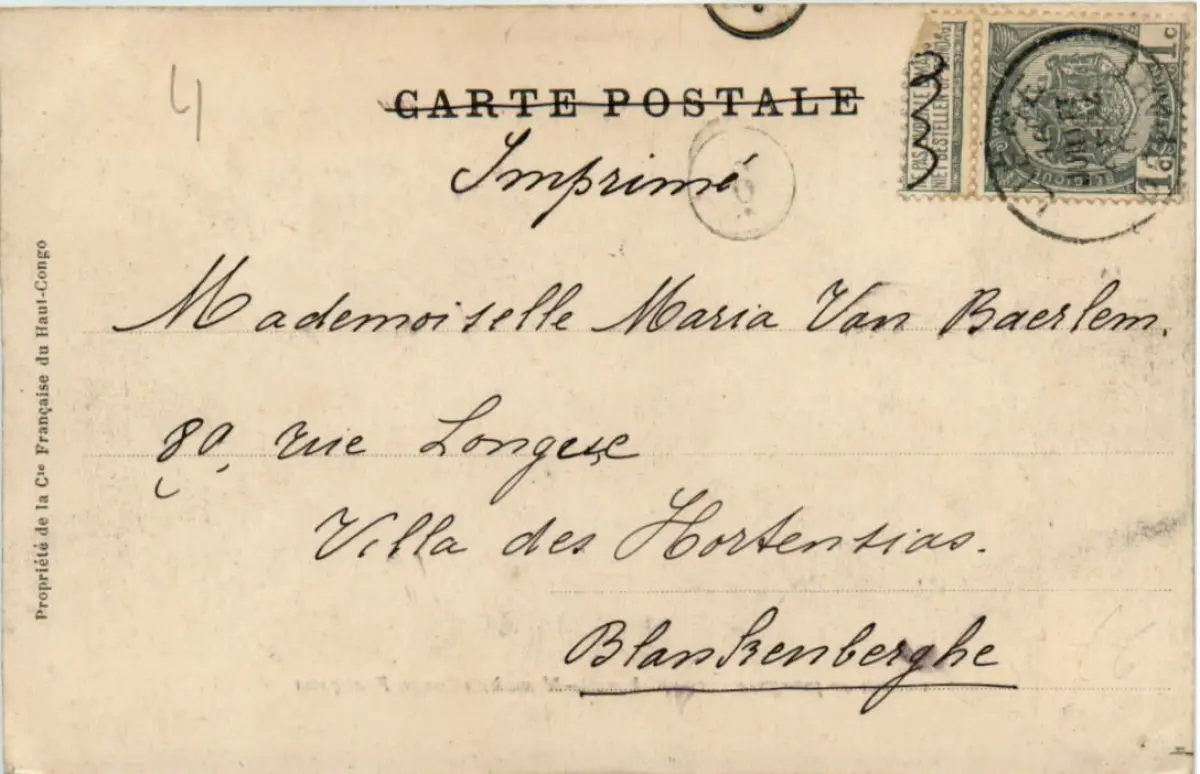 4
CARTE POSTALE
Imprimé
Mademoiselle Maria Van Baerlem.
80, rue Longue
Villa des Hortensias.
Blankenberghe
Propriété de la Cie Française du Haut-Congo
NE PAS LIVRER LE DIMANCHE
NIET BESTELLEN OP ZONDAG
1c 1c
BELGIQUE
6